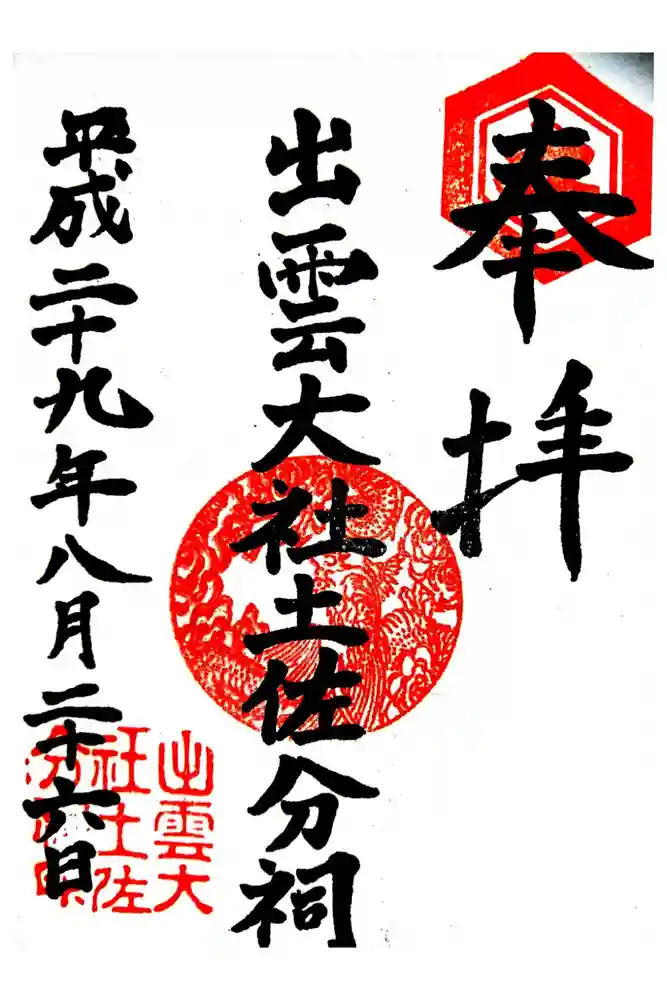 奉拝
出雲大社土佐分祠
平成二十九年八月二十六日
出雲大
社土佐
分祠